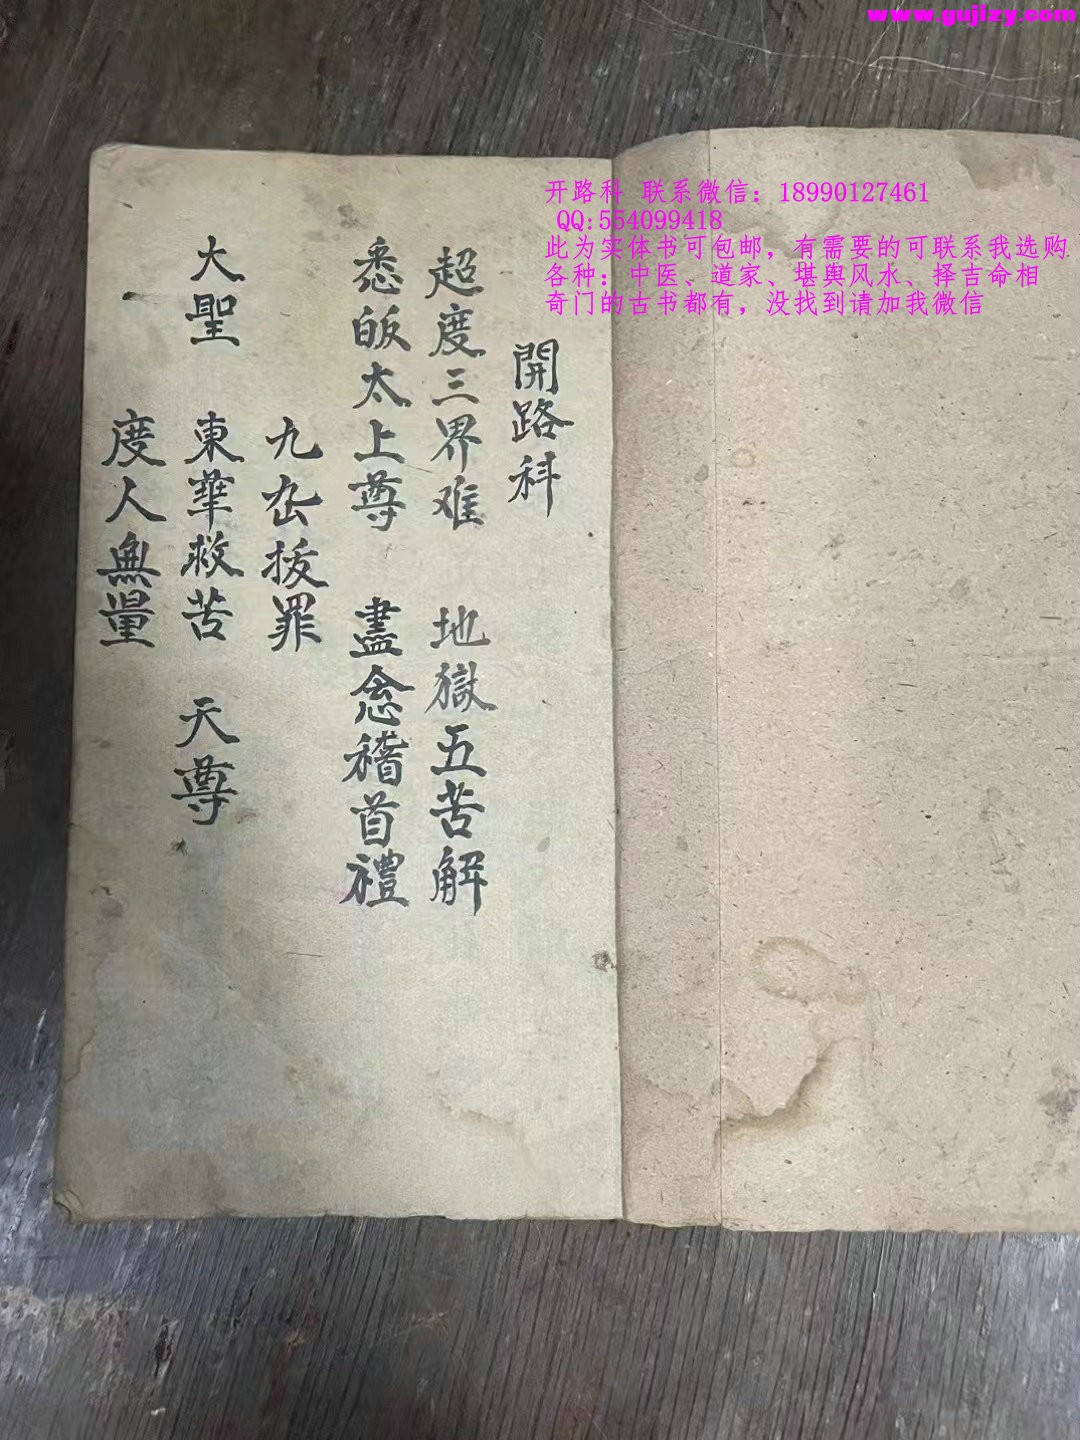 www.gujizy.com
开路科 联系微信：18990127461
QQ:554099418
此为实体书可包邮，有需要的可联系我选购
各种：中医、道家、堪舆风水、择吉命相
奇门的古书都有，没找到请加我微信
開路科
超度三界难 地獄五苦解
悉皈太上尊 盡念稽首禮
九幽拔罪
大聖 東華救苦 天尊
度人無量